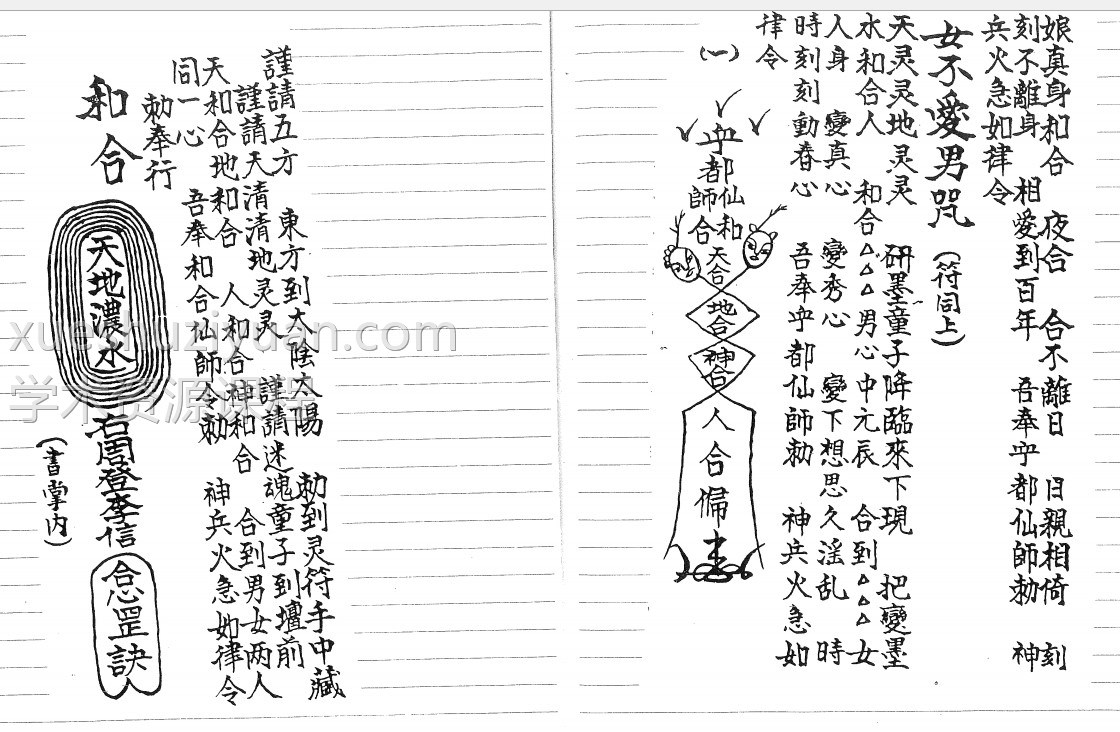 娘真身和合　夜合　合不離日　日親相倚　刻
刻不離身　相愛到百年　吾奉乎都仙師勅　神
兵火急如律令
女不愛男咒（符同上）
天灵灵地灵灵　研墨童子降臨來下現　把變墨
水和合人　和合△△△男心中元辰　合到△△△女
人身　變真心　變秀心　變下想思久淫乱　時
時刻刻動春心　吾奉乎都仙師勅　神兵火急如
律令
（一）
乎都
仙師
和合
天合
地合
神合
人合
謹請五方　東方到太陰太陽　勅到灵符手中藏
謹請天清清地灵灵　謹請迷魂童子到壇前
天和合地和合　人和合神和合　合到男女两人
同一心　吾奉和合仙師令勅　神兵火急如律令
勅奉行
和合
天地濃水
石周登李信
合罡訣
（書掌内）
xueshuziyuan.com
学术资源课程